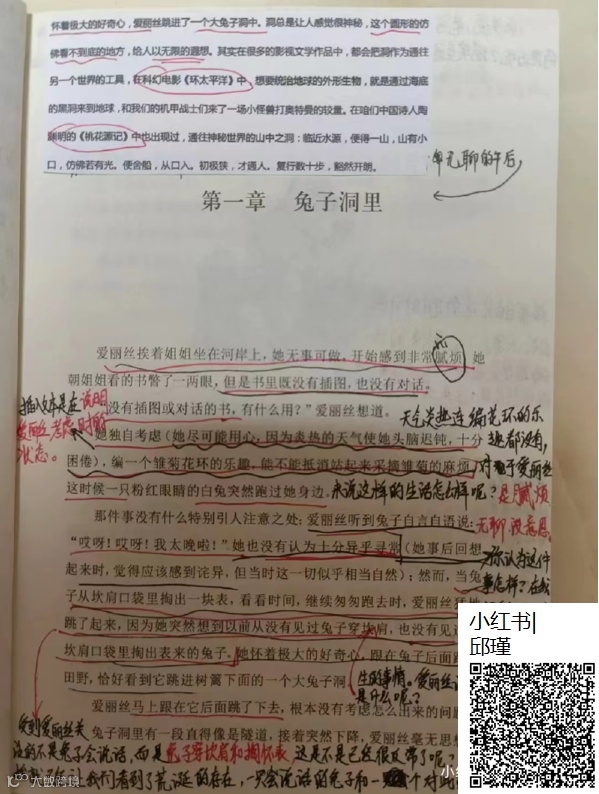 怀着极大的好奇心，爱丽丝跳进了一个大兔子洞中。洞总是让人感觉很神秘，这个圆形的仿
佛看不到底的地方，给人以无限的遐想。其实在很多的影视文学作品中，都会把洞作为通往
另一个世界的工具，在科幻电影《环太平洋》中，想要统治地球的外形生物，就是通过海底
的黑洞来到地球，和我们的机甲战士们来了一场小怪兽打奥特曼的较量。在咱们中国诗人陶
渊明的《桃花源记》中也出现过，通往神秘世界的山中之洞：临近水源，便得一山，山有小
口，仿佛若有光。便舍船，从口入。初极狭，才通人。复行数十步，豁然开朗。
无聊的午后，
第一章 兔子洞里
爱丽丝挨着姐姐坐在河岸上，她无事可做，开始感到非常腻烦，她
朝姐姐看的书瞥了一两眼，但是书里既没有插图，也没有对话。
没有插图或对话的书，有什么用？”爱丽丝想道。
天气炎热连编花环的乐
她独自考虑（她尽可能用心，因为炎热的天气使她头脑迟钝，十分
趣都没有，
困倦），编一个雏菊花环的乐趣，能不能抵消站起来采摘雏菊的麻烦，
对于爱丽丝
这时候一只粉红眼睛的白兔突然跑过她身边。
来说这样的生活怎么样呢？是腻烦
那件事没有什么特别引人注意之处；爱丽丝听到兔子自言自语说：
无聊没意思
“哎呀！哎呀！我太晚啦！”她也没有认为十分异乎寻常（她事后回想
你认为这件
起来时，觉得应该感到诧异，但当时这一切似乎相当自然）；然而，当兔
事怎样？
子从坎肩口袋里掏出一块表，看看时间，继续匆匆跑去时，爱丽丝猛地
跳了起来，因为她突然想到以前从没有见过兔子穿坎肩，也没有见过
坎肩口袋里掏出表来的兔子。她怀着极大的好奇心，跟在兔子后面跑
田野，恰好看到它跳进树篱下面的一个大兔子洞。
是什么呢？
爱丽丝马上跟在它后面跳了下去，根本没有考虑怎么出来的问题
兔子洞里有一段直得像是隧道，接着突然下降，爱丽丝毫无思想
的不是兔子会说话，而是兔子穿坎肩和掏怀表 这是不是已经很反常了呢
我们看到了荒诞的存在，一只会说话的兔子和一个对此
小红书|
邱瑾
大数跨境